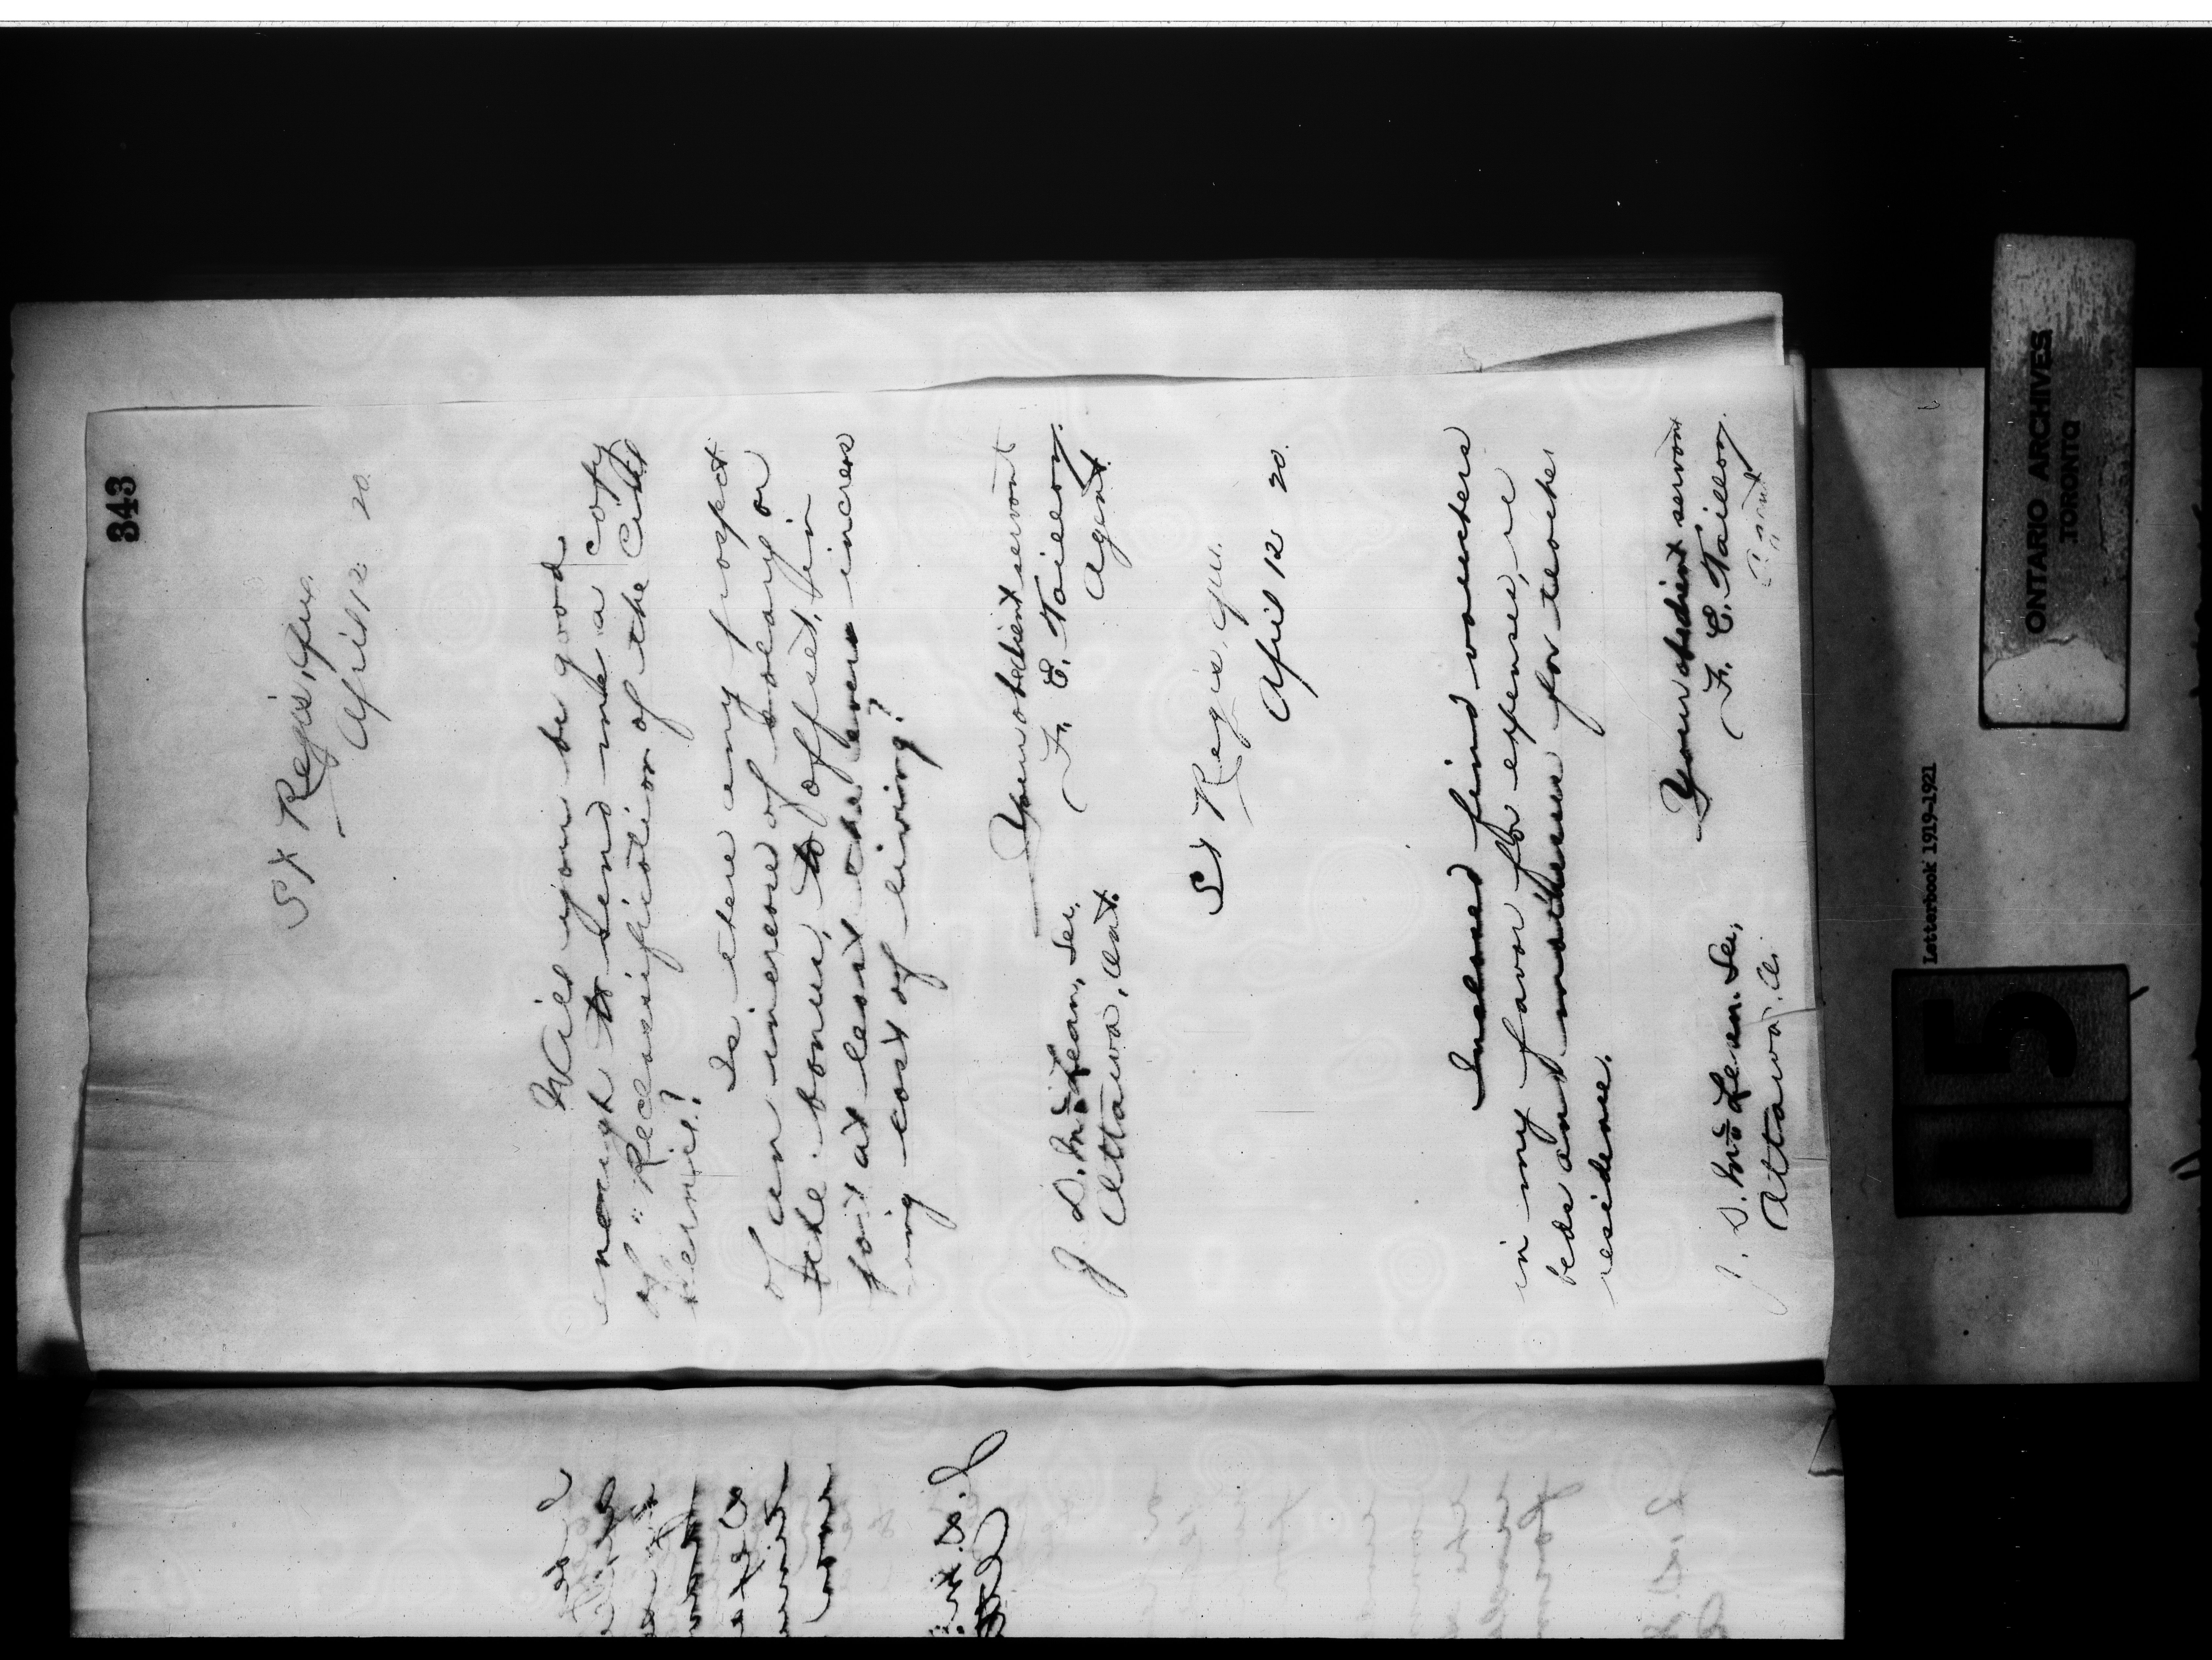 343
St Regis, Que.
April 12 20.
Will you be good
enough to send me a copy
of "Reclassification of the Civil
Service?
Is there any prospect
of an increase of salary or
the bonus, to offset, in
part at least the ever increas
ing cost of living?
Your obedient servant
F. E. Taillon,
Agent
J. D. McLean, Sec,
Ottawa, Ont.
St Regis, Que.
April 12 20.
Inclosed find vouchers
in my favor for expense, re
beds and mattresses for teacher
residence.
Your obedient servant
F. E. Taillon,
Agent
J. D. McLean. Sec,
Ottawa, O.
Letterbook 1919-1921
ONTARIO ARCHIVES
TORONTO
15